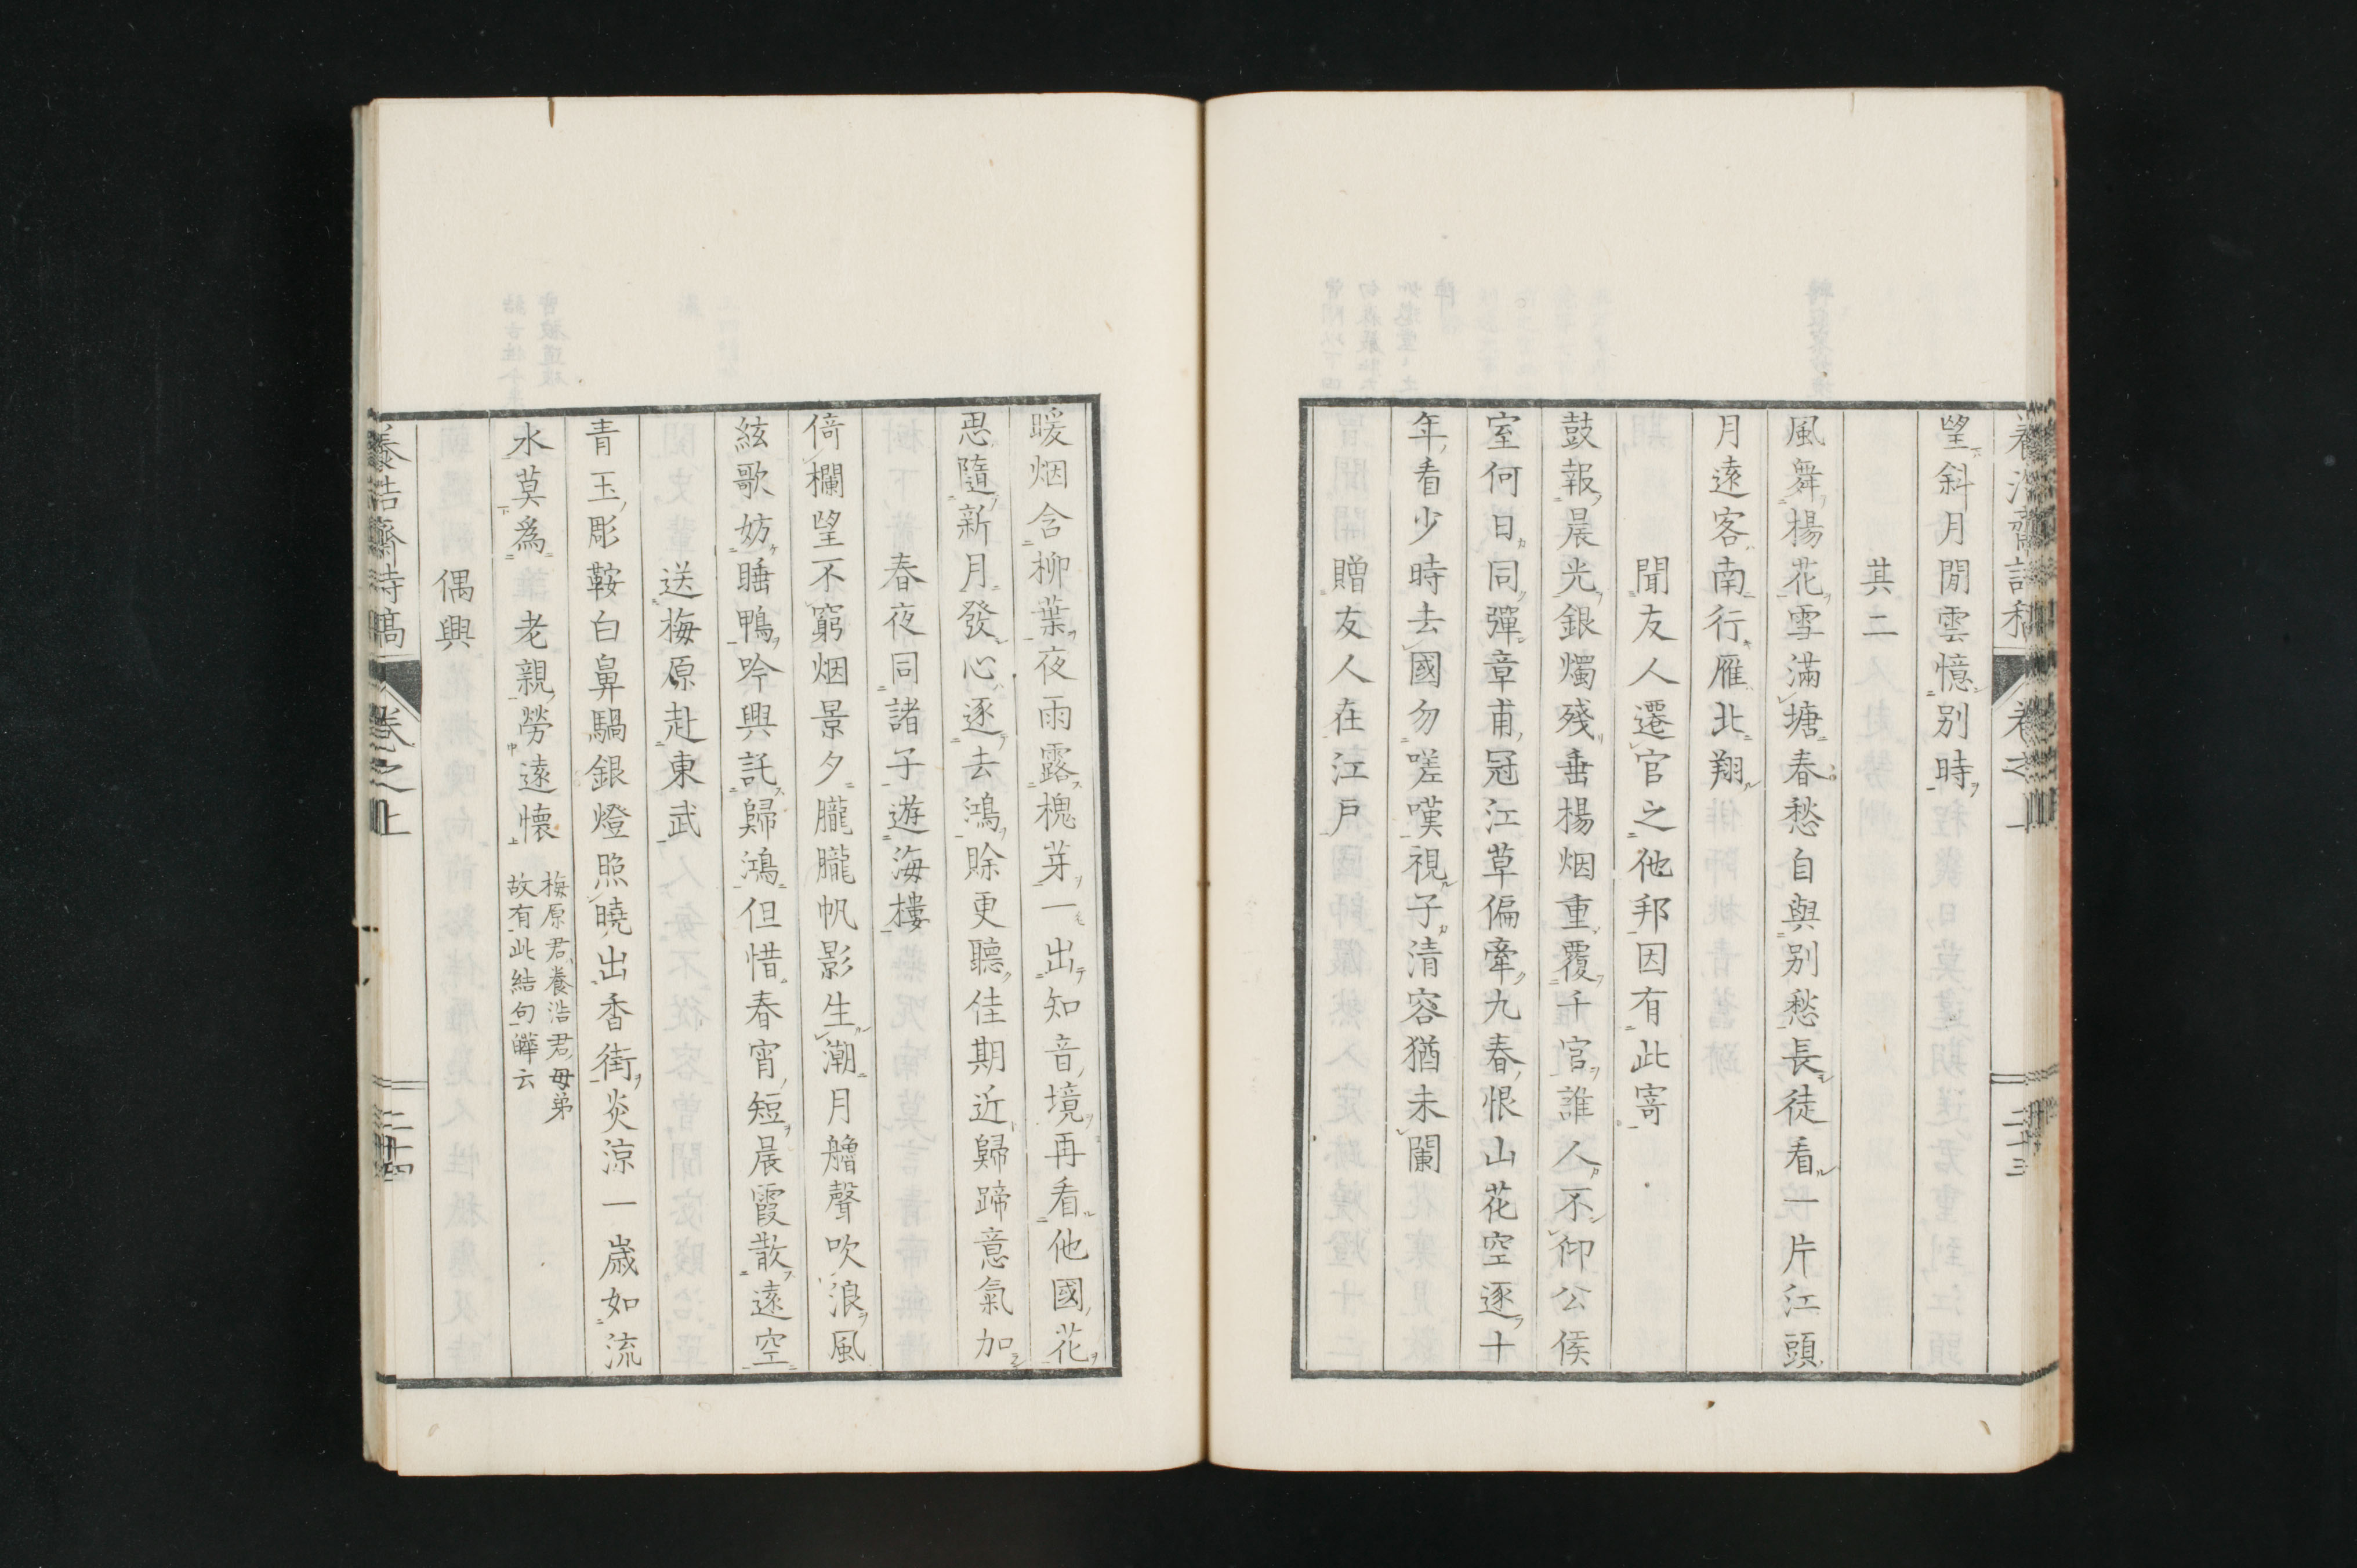 望斜月閒雲憶別時
其二
風舞楊花雪滿塘春愁自與別愁長徒看一片江頭
月遠客南行雁北翔
聞友人遷官之他邦因有此寄
鼓報晨光銀燭殘垂楊烟重覆千官誰人不仰公侯
室何日同彈章甫冠江草偏牽九春恨山花空逐十
年看少時去國勿嗟嘆視子清容猶未闌
贈友人在江戶
暖烟含柳葉夜雨露槐芽一出知音境再看他國花
思隨新月發心逐去鴻賒更聽佳期近歸蹄意氣加
春夜同諸子遊海樓
倚欄望不窮烟景夕朧朧帆影生潮月艪聲吹浪風
絃歌妨睡鴨吟興託歸鴻但惜春宵短晨霞散遠空
送梅原赴東武
青玉彫鞍白鼻騧銀燈照曉出香街炎涼一歲如流
水莫爲老親勞遠懷
梅原君養浩君母弟
故有此結句皣云
偶興
養浩齋詩稿 卷之上 二十四